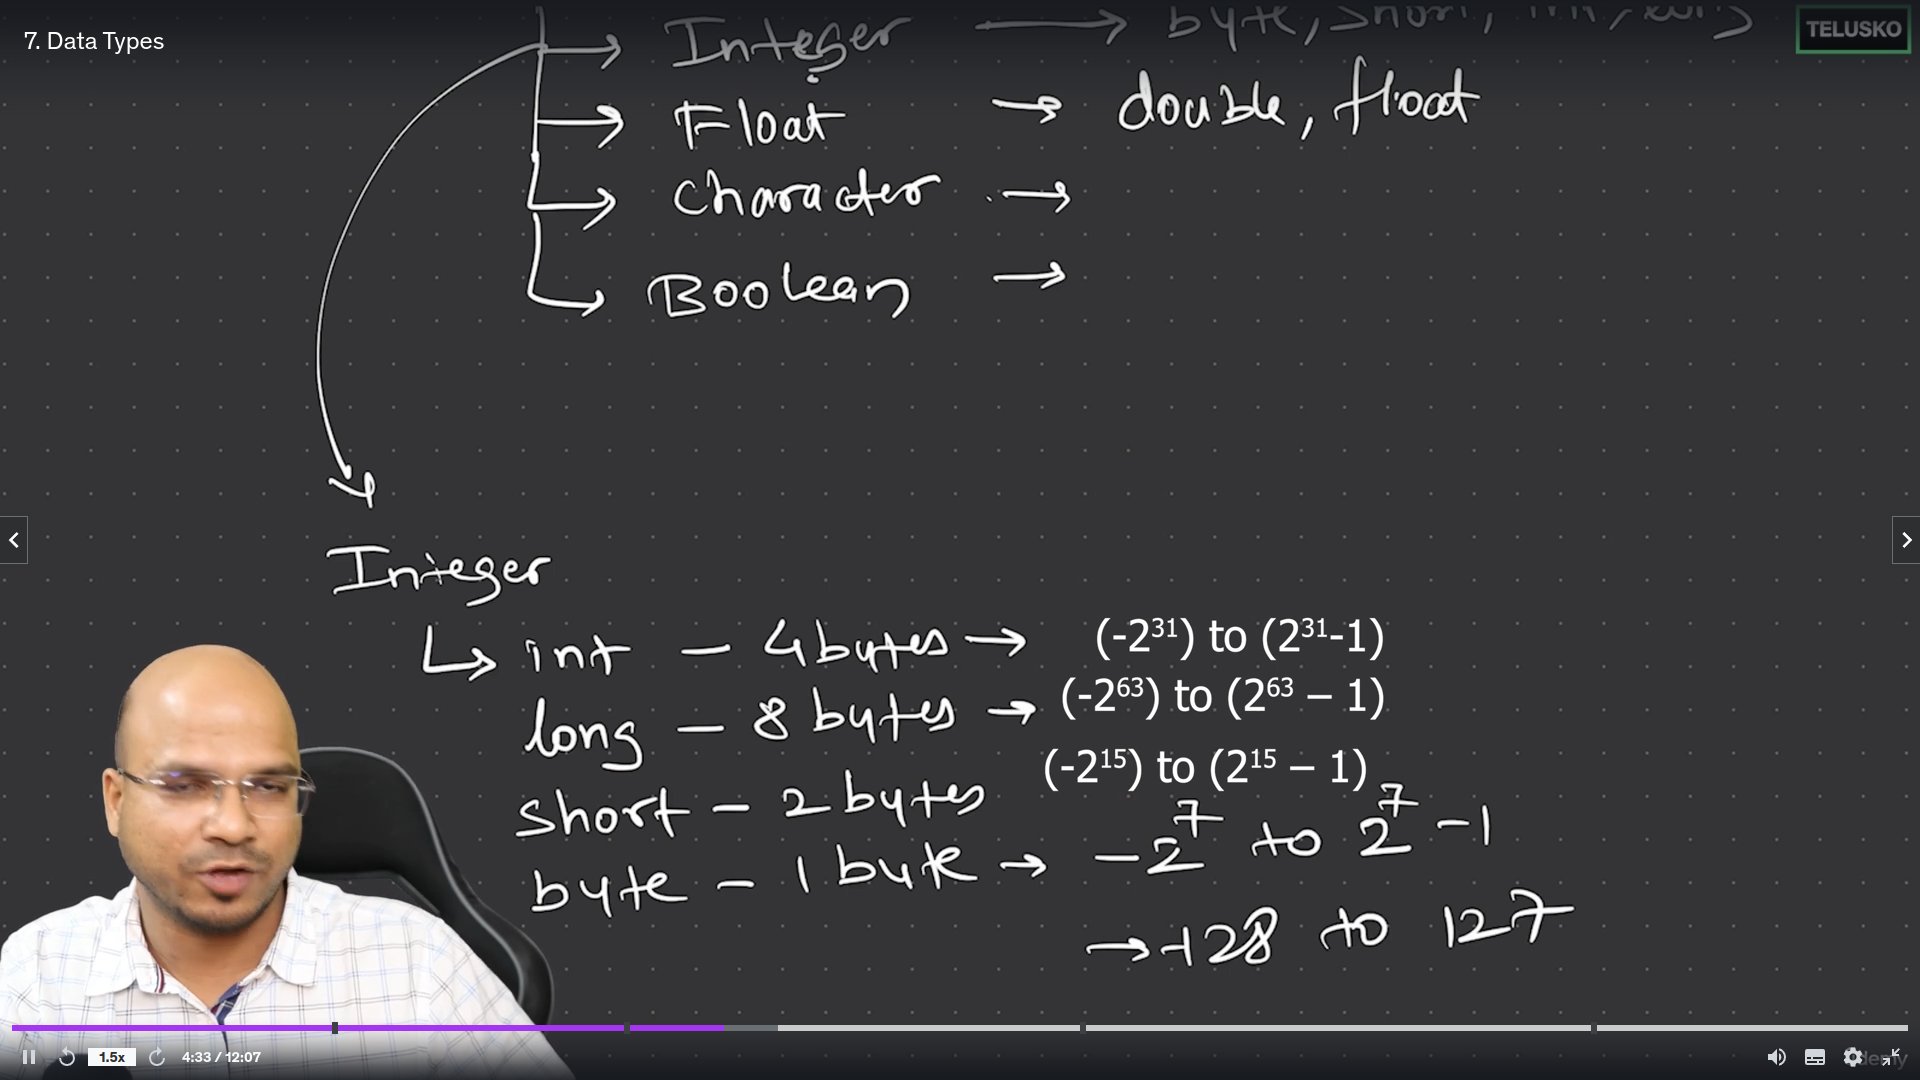 7. Data Types
TELUSKO
Integer → byte, short, int, long
Float → double, float
Character →
Boolean →
Integer
int – 4 bytes → (-2³¹) to (2³¹-1)
long – 8 bytes → (-2⁶³) to (2⁶³ – 1)
short – 2 bytes (-2¹⁵) to (2¹⁵ – 1)
byte – 1 byte → -2⁷ to 2⁷ -1
→ -128 to 127
1.5x 4:33 / 12:07